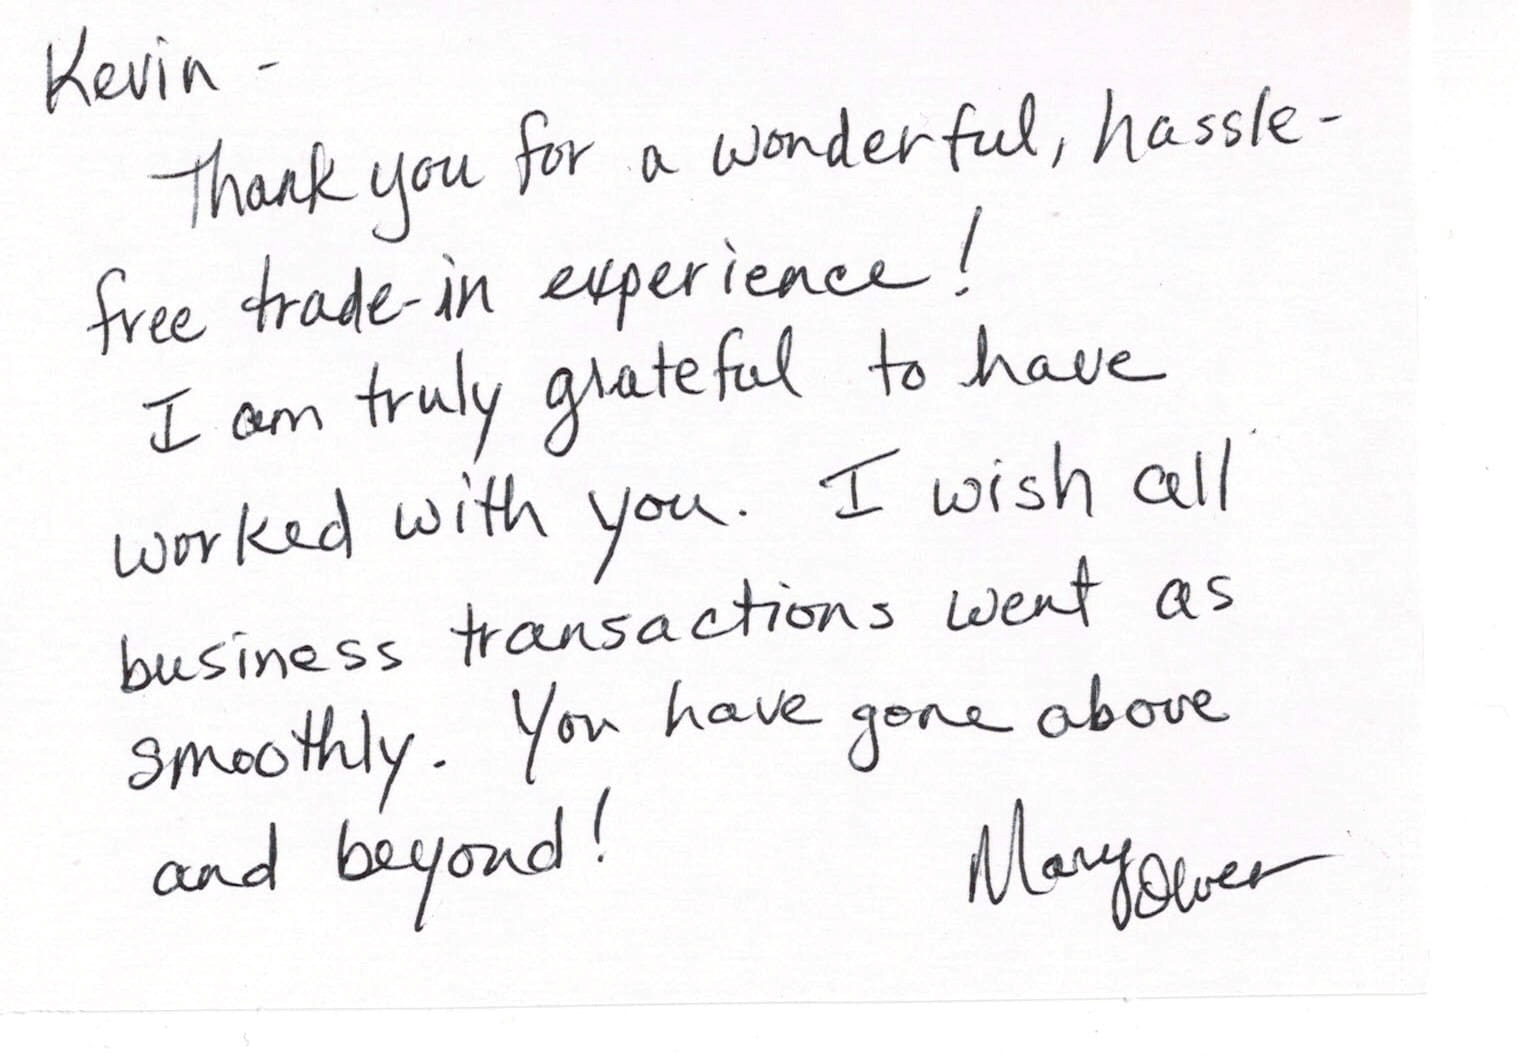 Kevin -
Thank you for a wonderful, hassle-
free trade-in experience!
I am truly grateful to have
worked with you. I wish all
business transactions went as
smoothly. You have gone above
and beyond!
Mary Oliver